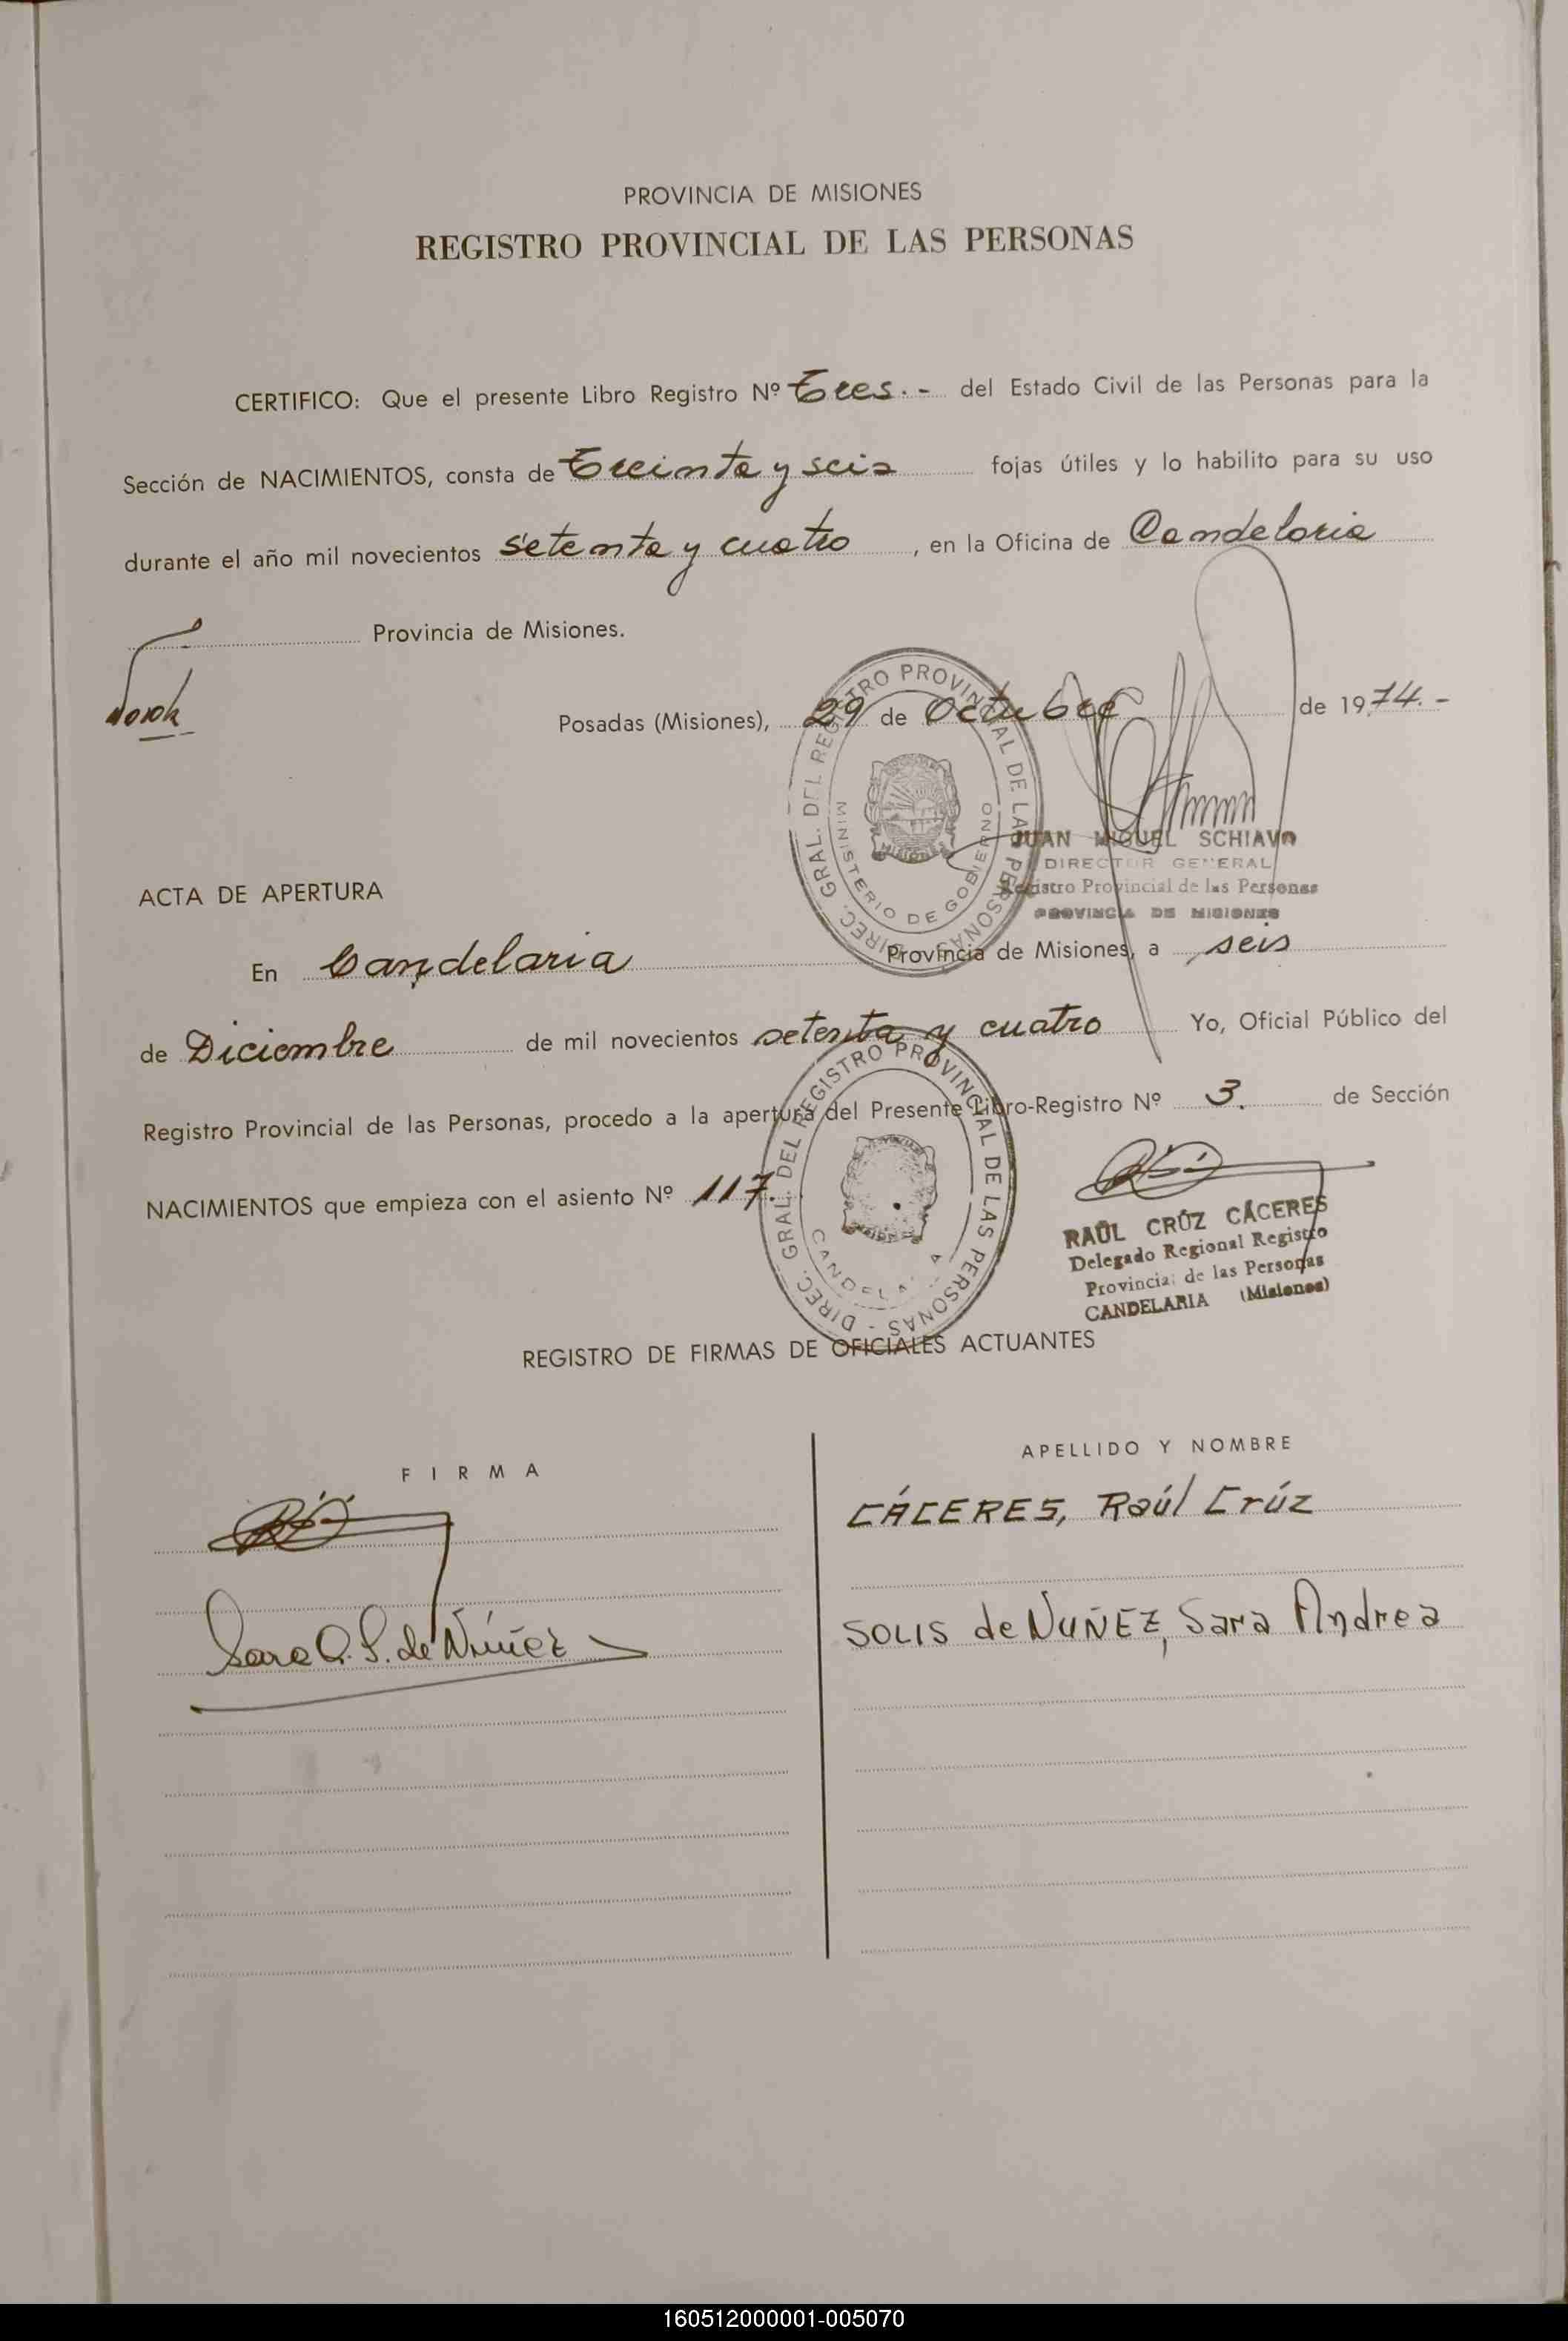 PROVINCIA DE MISIONES
REGISTRO PROVINCIAL DE LAS PERSONAS
CERTIFICO: Que el presente Libro Registro Nº Tres.- del Estado Civil de las Personas para la
Sección de NACIMIENTOS, consta de Treinta y seis fojas útiles y lo habilito para su uso
durante el año mil novecientos setenta y cuatro, en la Oficina de Candelaria
Provincia de Misiones.
Posadas (Misiones), 29 de Octubre de 1974.-
DIREC. GRAL. DEL REGISTRO PROVINCIAL DE LAS PERSONAS
MINISTERIO DE GOBIERNO
MISIONES
JUAN MIGUEL SCHIAVO
DIRECTOR GENERAL
Registro Provincial de las Personas
PROVINCIA DE MISIONES
ACTA DE APERTURA
En Candelaria Provincia de Misiones, a seis
de Diciembre de mil novecientos setenta y cuatro Yo, Oficial Público del
Registro Provincial de las Personas, procedo a la apertura del Presente Libro-Registro Nº 3. de Sección
NACIMIENTOS que empieza con el asiento Nº 117.
DIREC. GRAL. DEL REGISTRO PROVINCIAL DE LAS PERSONAS -
RAÚL CRÚZ CÁCERES
Delegado Regional Registro
Provincial de las Personas
CANDELARIA (Misiones)
REGISTRO DE FIRMAS DE OFICIALES ACTUANTES
FIRMA
APELLIDO Y NOMBRE
CÁCERES, Raúl Crúz
Sara A. S. de Núñez
SOLIS de NUÑEZ, Sara Andrea
160512000001-005070